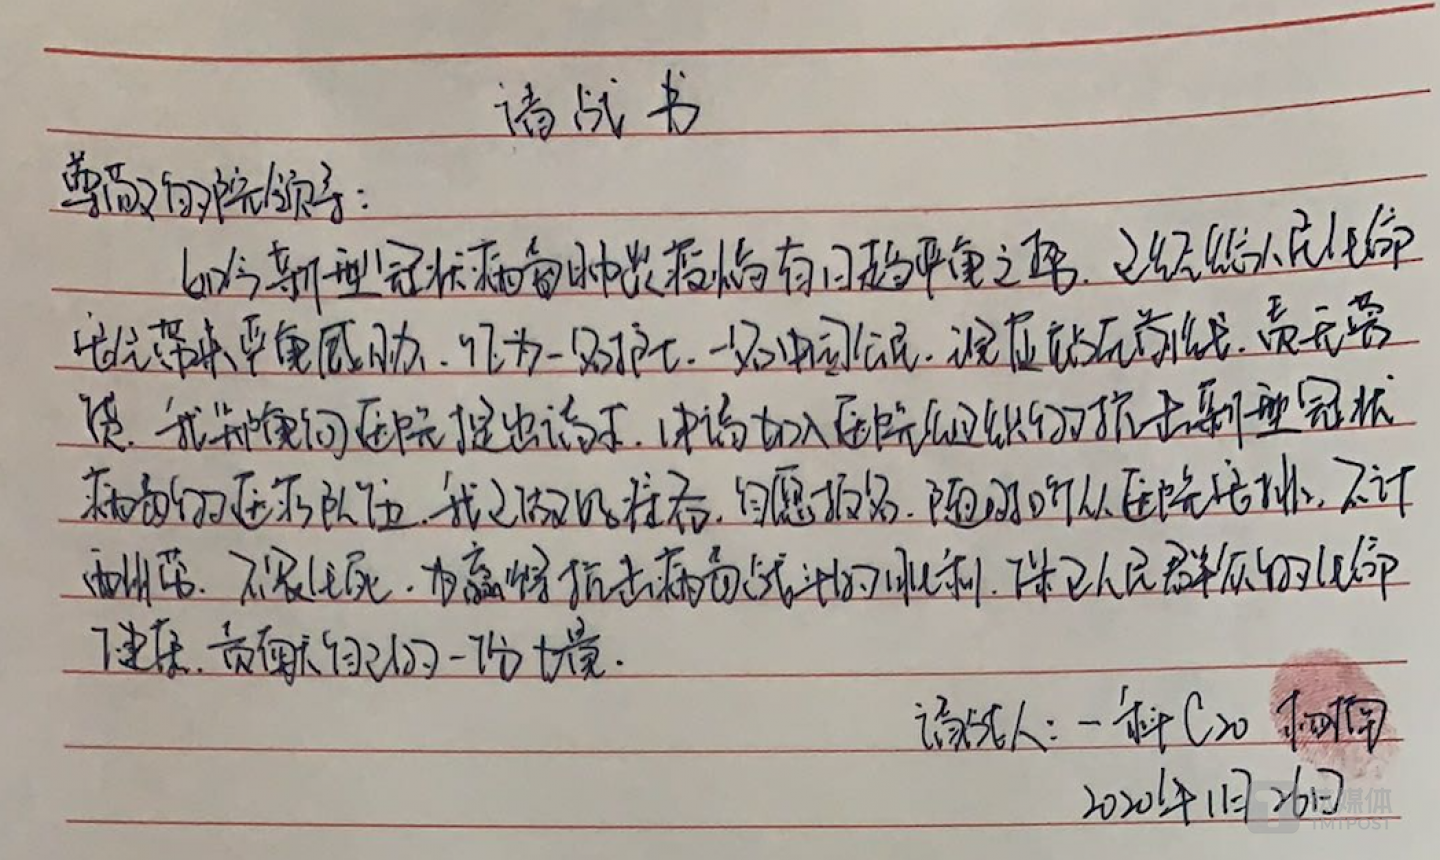 请战书
尊敬的院领导：
如今新型冠状病毒肺炎疫情有日趋严重之势，已经给人民生命
安全带来严重威胁，作为一名护士，一名中国公民，议应站在前线，责无旁
贷，我郑重向医院提出请求，申请加入医院组织的抗击新型冠状
病毒的医疗队伍，我已做好准备，自愿报名，随时听从医院安排，不计
酬劳，不畏生死，为赢得抗击病毒战斗的胜利，保卫人民群众的生命
健康，贡献自己的一份力量.
请战人：一科C20
2020年1月26日
钛媒体
TMTPOST